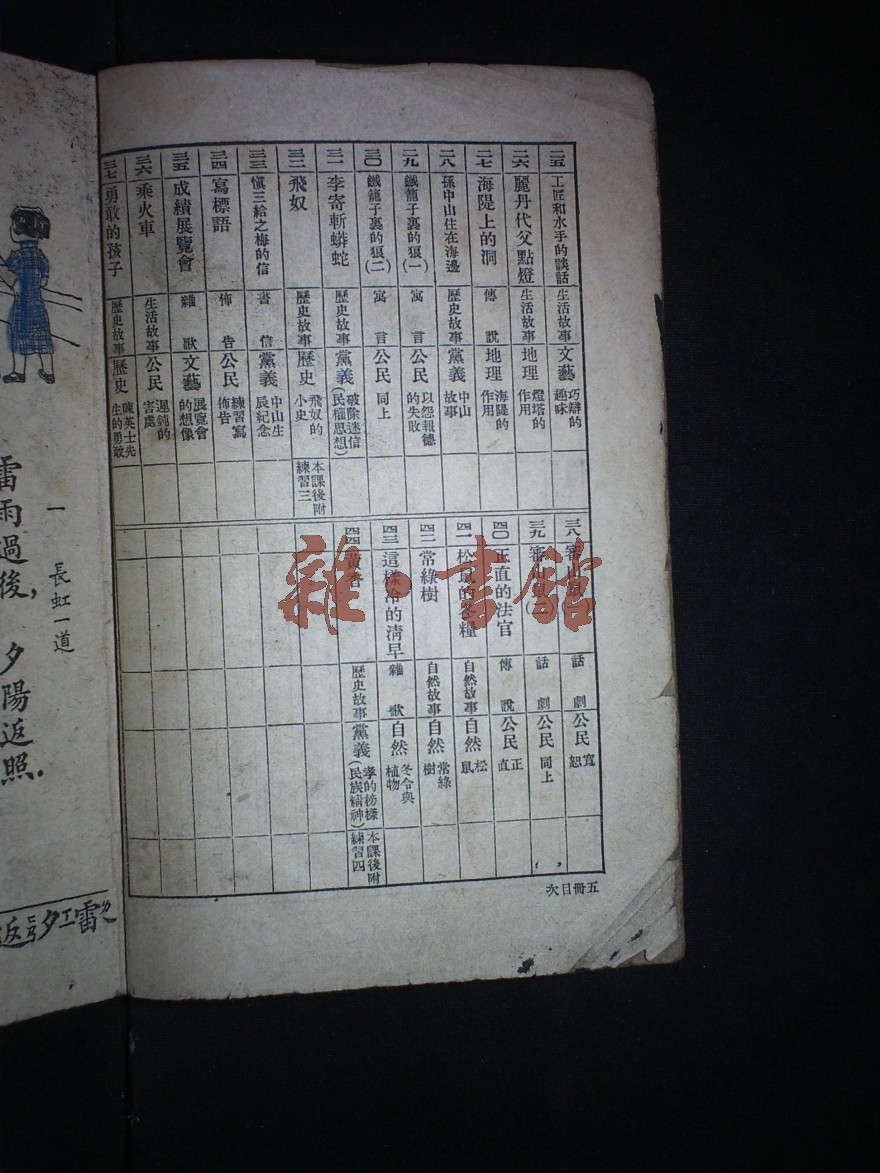 二五 工匠和水手的談話 生活故事 文藝 巧辯的趣味
二六 麗丹代父點燈 生活故事 地理 燈塔的作用
二七 海隄上的洞 傳說 地理 海隄的作用
二八 孫中山住在海邊 歷史故事 黨義 中山故事
二九 鐵籠子裏的狼(一) 寓言 公民 以怨報德的失敗
三〇 鐵籠子裏的狼(二) 寓言 公民 同上
三一 李寄斬蟒蛇 歷史故事 黨義 破除迷信(民權思想)
三二 飛奴 歷史故事 歷史 飛奴的小史 本課後附練習三
三三 慎三給之梅的信 書信 黨義 中山生辰紀念
三四 寫標語 佈告 公民 練習寫佈告
三五 成績展覽會 雜歌 文藝 展覽會的想像
三六 乘火車 生活故事 公民 遲鈍的害處
三七 勇敢的孩子 歷史故事 歷史 陳英士先生的勇敢
三八 審 話劇 公民 寬恕
三九 審山 話劇 公民 同上
四〇 正直的法官 傳說 公民 正直
四一 松鼠的冬糧 自然故事 自然 松鼠
四二 常綠樹 自然故事 自然 常綠樹
四三 這樣冷的清早 雜歌 自然 冬令與植物
四四 黃香 歷史故事 黨義 孝的榜樣(民族精神) 本課後附練習四
五冊目次
雜·書館
一 長虹一道
雷雨過後,夕陽返照.
雷 夕 返